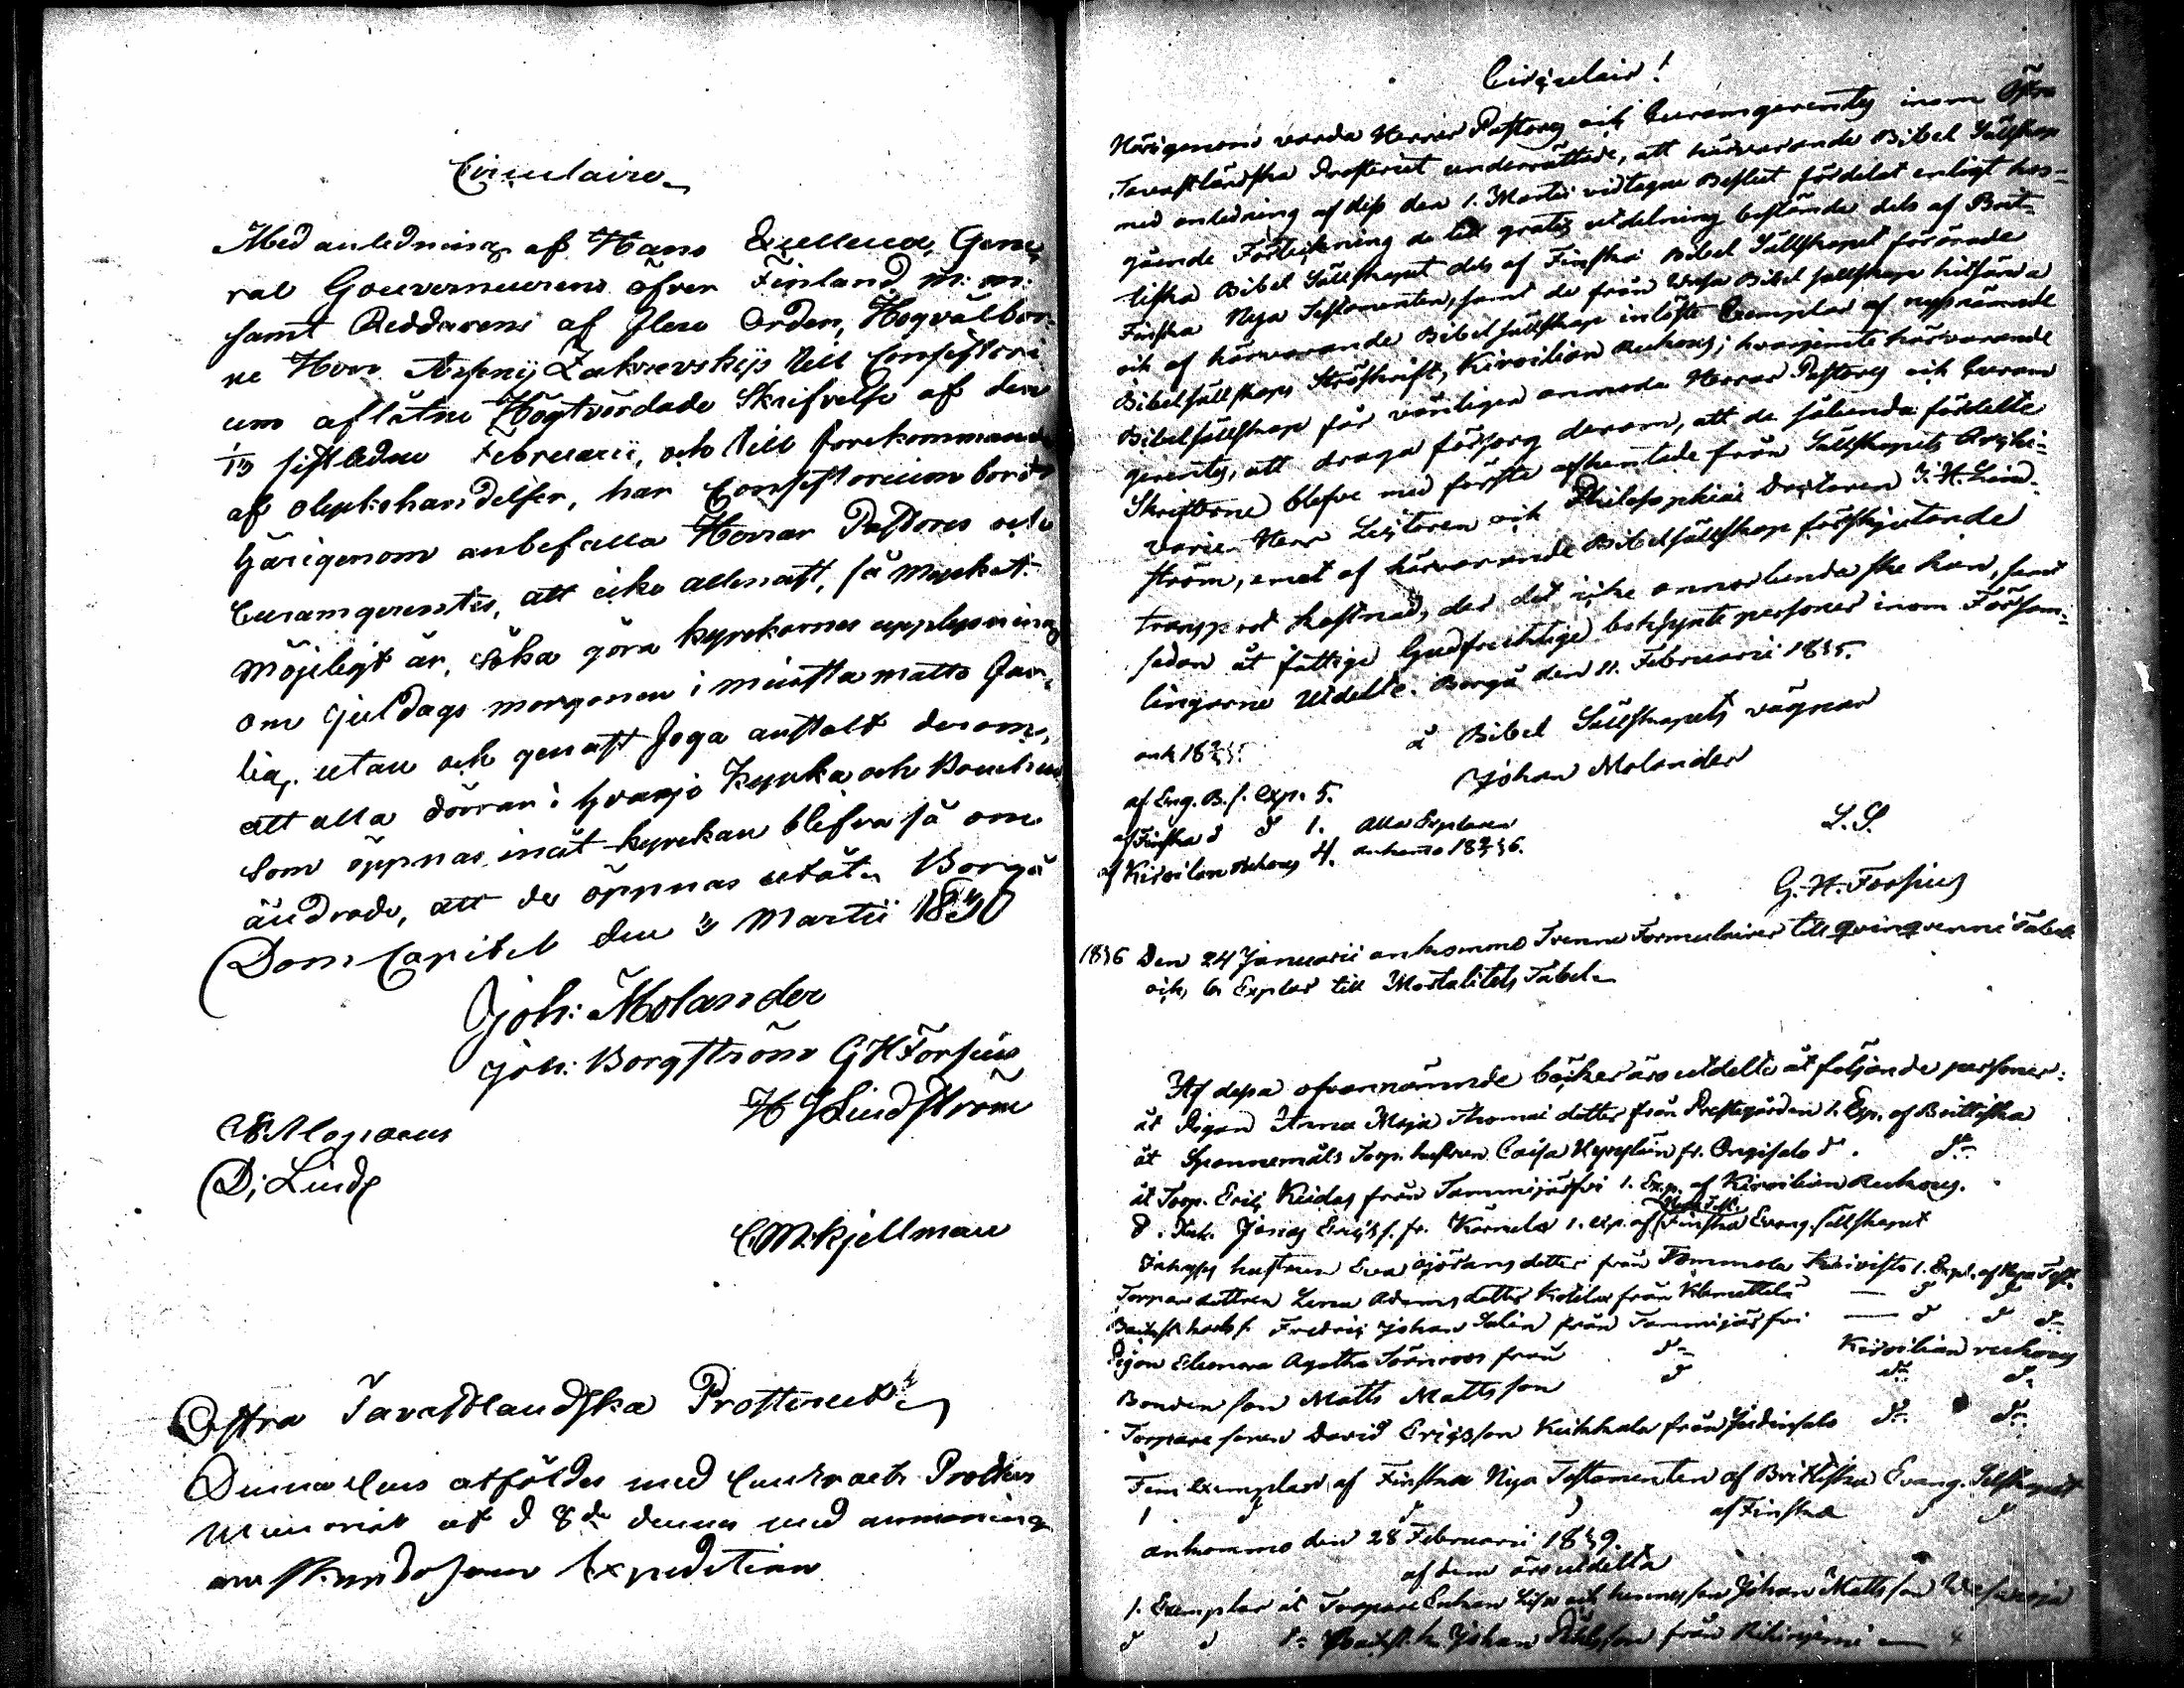 Circulaire
Med anledning af Hans Excellence, Gene-
ral Gouverneurens öfver Finland m: m:
samt Riddarens af flere Orden, Högvälbor-
ne Herr Arsenij Zakrevskijs till Consistori-
um aflåtne Högtvördade Skrifvelse af den
1/13 sistledne Februarii, och till förekommande
af olyckshändelser, har Consistorium bordt
härigenom anbefalla Herrar Pastores och
Curamgerentes, att icke allenast, så mycket
möjeligt är, söka göra kyrkornes upplysning
om Juldags morgonen i minsta måtto far-
lig, utan och genast foga anstalt derom,
att alla dörrar i hvarje Kyrka och Bönehus
som öppnas inåt kyrkan blifva så om
ändrade, att de öppnas utåt. Borgå
Dom Capitel den 3 Martii 1830
Joh: Molander
Joh: Borgström G H Forsius
H J Lindström
Alopaeus
D; Lind
C. M. Kjellman
Östra Tavastlandska Prosteriet
Denna afföldes med
Memorial af d 8de denna med anmaning
om skyndosam Expedition
Circulair!
Härigenom varda Herrar Pastores och Curamgerentes inom Östra
Tavastländska Prosteriet underrättade, att härvarande Bibel Sällskap
med anledning af dess den 1. Martii vidtagne Beslut fördelat enligt hos-
gående Förteckning de till gratis utdelning bestämda dels af Brit-
tiska Bibel Sällskapet dels af Finska Bibel Sällskapet förärade
Finska Nya Testamenten, samt de från Wasa Bibel sällskap hitsända
och af härvarande Bibelsällskap inlöste Exemplar af nyssnämnde
Bibelsällskaps Ströskrift, Kirvoilian rukous; hvarjemte härvarande
Bibelsällskap får vänligen anmoda Herrar Pastores och Curam
gerentes, att draga försorg derom, att de sålunda fördelte
Skrifterne blefve med första afhemtade från Sällskapets Archi-
varie Herr Lectoren och Philosophiae Doctoren J. H. Lind-
ström, emot af härvarande Bibelsällskap förskjutande
transport kostnad, der det icke annorlunda ske kan, samt
sedan åt fattige Gudfruchtige behöfvande personer inom Försam-
lingarne Utdelte. Borgå den 11. Februarii 1835.
å Bibel Sällskapets vägnar
ank 18
Johan Molander
af Eng. B. s. Exp. 5.
L. S.
af Finska d d 1. alla Explaren
af Kirvoilian rukous 4. ankomo 1836.
G. H. Forsius
1836 Den 24 Januarii ankommo Trenne Formulairer till qvinqvennii Tabell
och, 6 Explar till Mortalitets Tabel
Af dessa ofvannämnde böcker äro utdelte åt följande personer:
åt Pigan Anna Maja Thomae dotter från Prestegården 1. Exp. af Brittiska
åt Spannemåls Torp. hustrun Caisa fr. Ongisalo d. do
åt Torp. Eric Kuidas från Tammijärfvi 1. Exp. af Kirvoilian Rukous.
d. Jonas Erics s. fr. Kärnela 1. exp. af Finska Evang. sällskapet
Inhyses hustrun Eva Görans dotter från Tommola Kuivisto 1. Expl. af Nya Test.
Torparedottren Lena Adams dotter Kotilax från d d
Fredric Johan Salin från Tammijärfvi d d do
Pigan Eleonora Agatha Törnroos från do Kirvoilian rukous
Bonden son Matts Mattsson d do d.
Torpare sonen David Ericsson Kuhkala från Judinsalo do do
Fem Exemplar af Finska Nya Testamenten af Brittiska Evang. Sällskapet
1 d d d af Finska d d
ankommo den 28 Februarii 1839.
af dem äro utdelta
1. Exemplar åt Torpare Enkan Lisa och hennes son Johan Mattsson
d d do Johan från